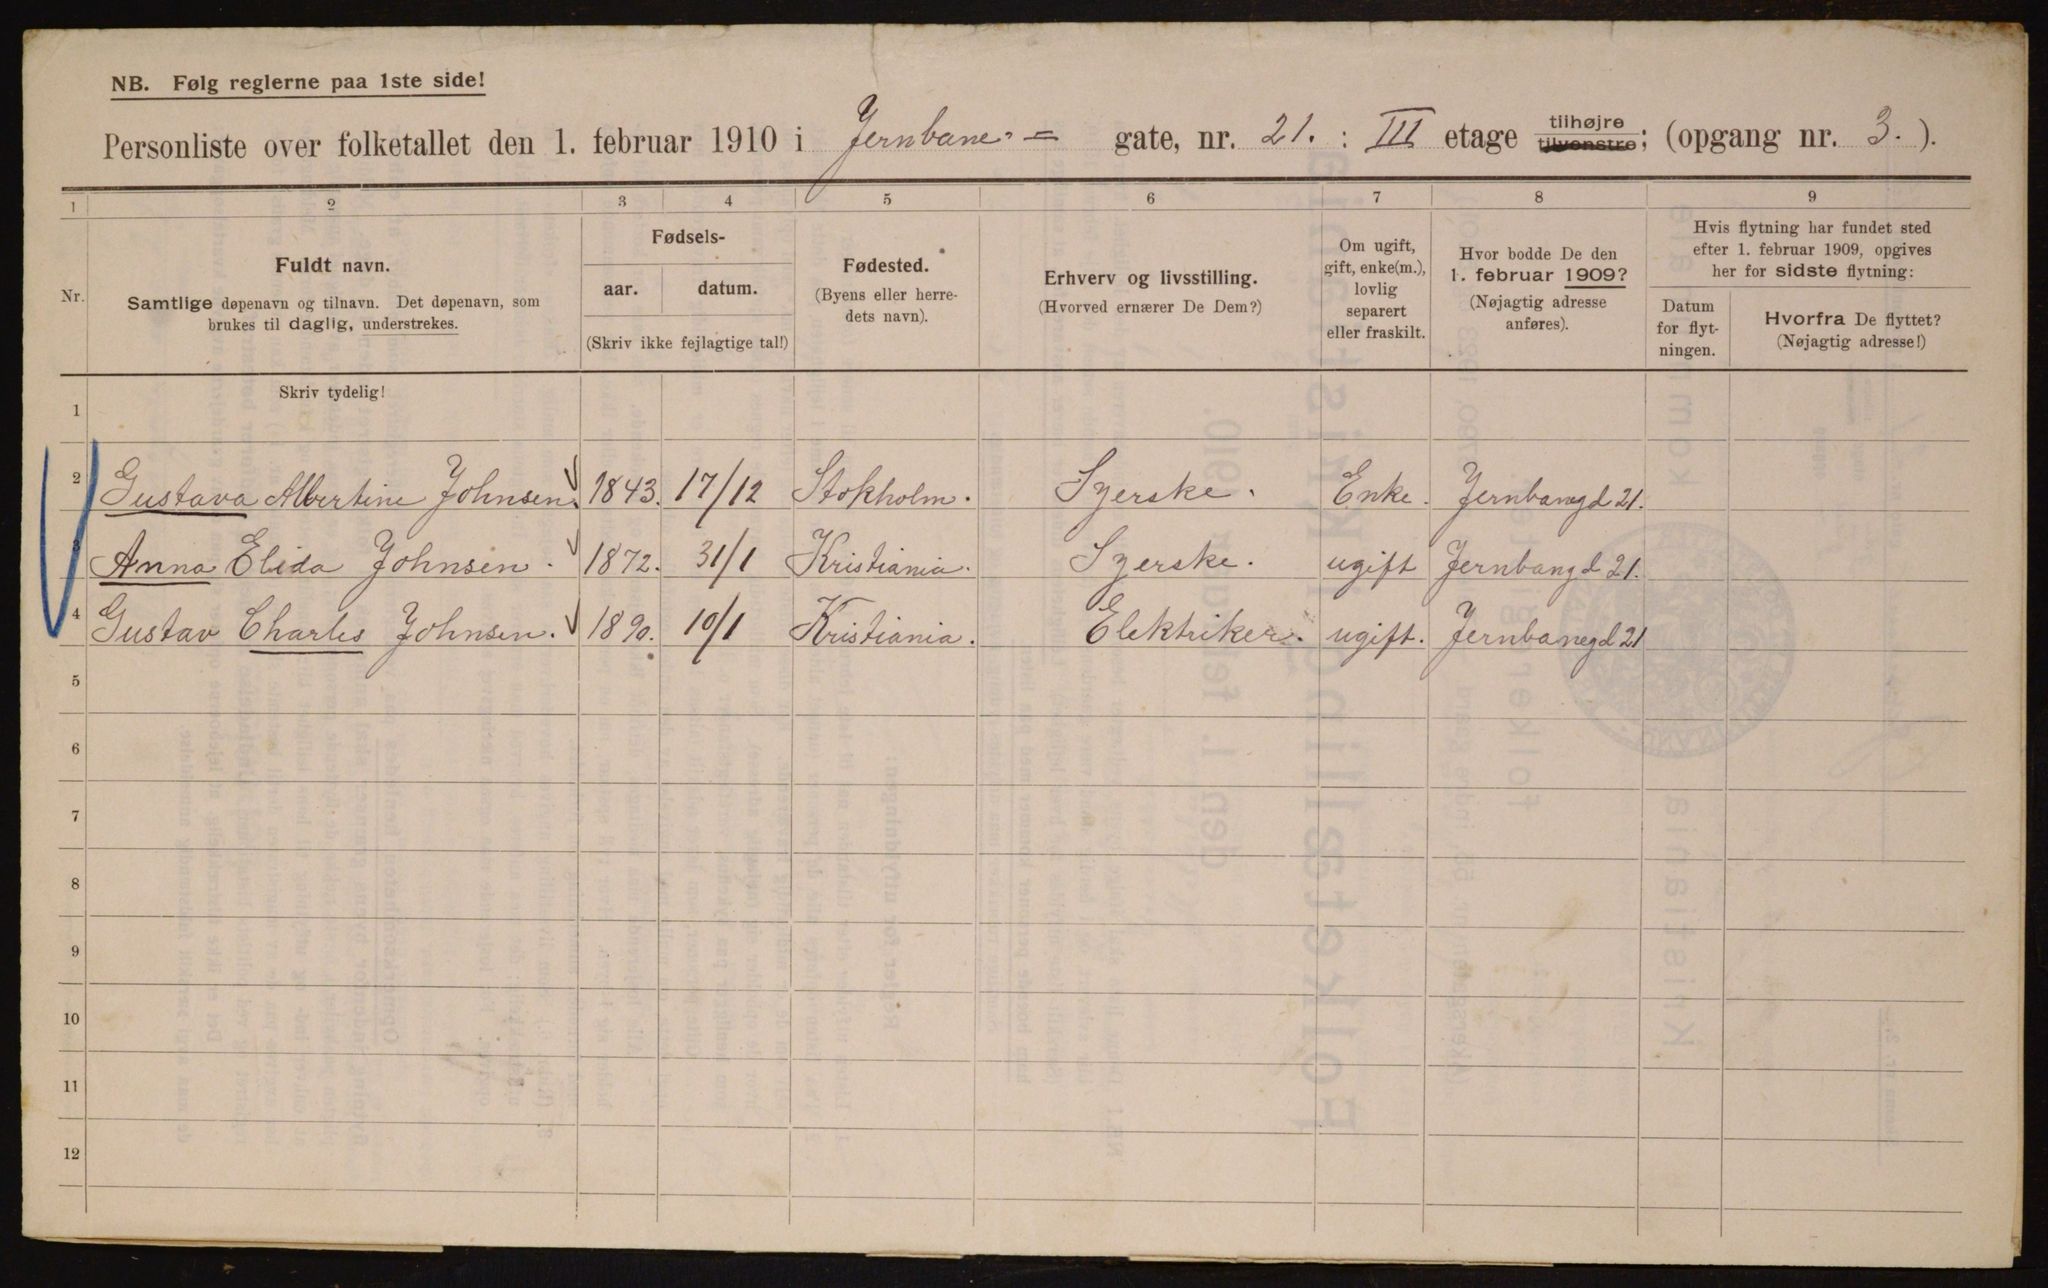 NB. Følg reglerne paa 1ste side!
Personliste over folketallet den 1. februar 1910 i Jernbane- = gate, nr. 21. : III etage tilhøjre tilvenstre; (opgang nr. 3.).
1 2 3 4 5 6 7 8 9
Nr.
Fuldt navn.
Samtlige døpenavn og tilnavn. Det døpenavn, som
brukes til daglig, understrekes.
Fødsels-
aar. datum.
(Skriv ikke fejlagtige tal!)
Fødested.
(Byens eller herre-
dets navn).
Erhverv og livsstilling.
(Hvorved ernærer De Dem?)
Om ugift,
gift, enke(m.),
lovlig
separert
eller fraskilt.
Hvor bodde De den
1. februar 1909?
(Nøjagtig adresse
anføres).
Hvis flytning har fundet sted
efter 1. februar 1909, opgives
her for sidste flytning:
Datum
for flyt-
ningen.
Hvorfra De flyttet?
(Nøjagtig adresse!)
Skriv tydelig!
1
2 Gustava Albertine Johnsen. 1843. 17/12 Stokholm. Syerske. Enke. Jernbanegd 21.
3 Anna Elida Johnsen. 1872. 31/1 Kristiania. Syerske. ugift Jernbangd 21.
4 Gustav Charles Johnsen. 1890. 10/1 Kristiania. Elektriker. ugift. Jernbanegd 21
5
6
7
8
9
10
11
12